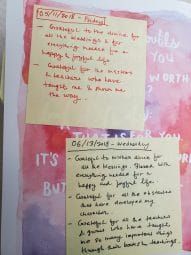 05/11/2018 - Friday
- Grateful to the divine for
all the blessings & for
everything needed for a
happy & joyful life.
- Grateful for the mentors
& teachers who have
taught me & shown me
the way.
06/13/2018 - Wednesday
- Grateful to mother divine for
all the blessings. Blessed with
everything needed for a
happy and joyful life.
- Grateful for all the obstacles
that have developed my
character.
- Grateful for all the teachers
& gurus who have taught
me so many important things
through their books & teachings.
YOU
ORTH
?
IT'S
YOU
BUT